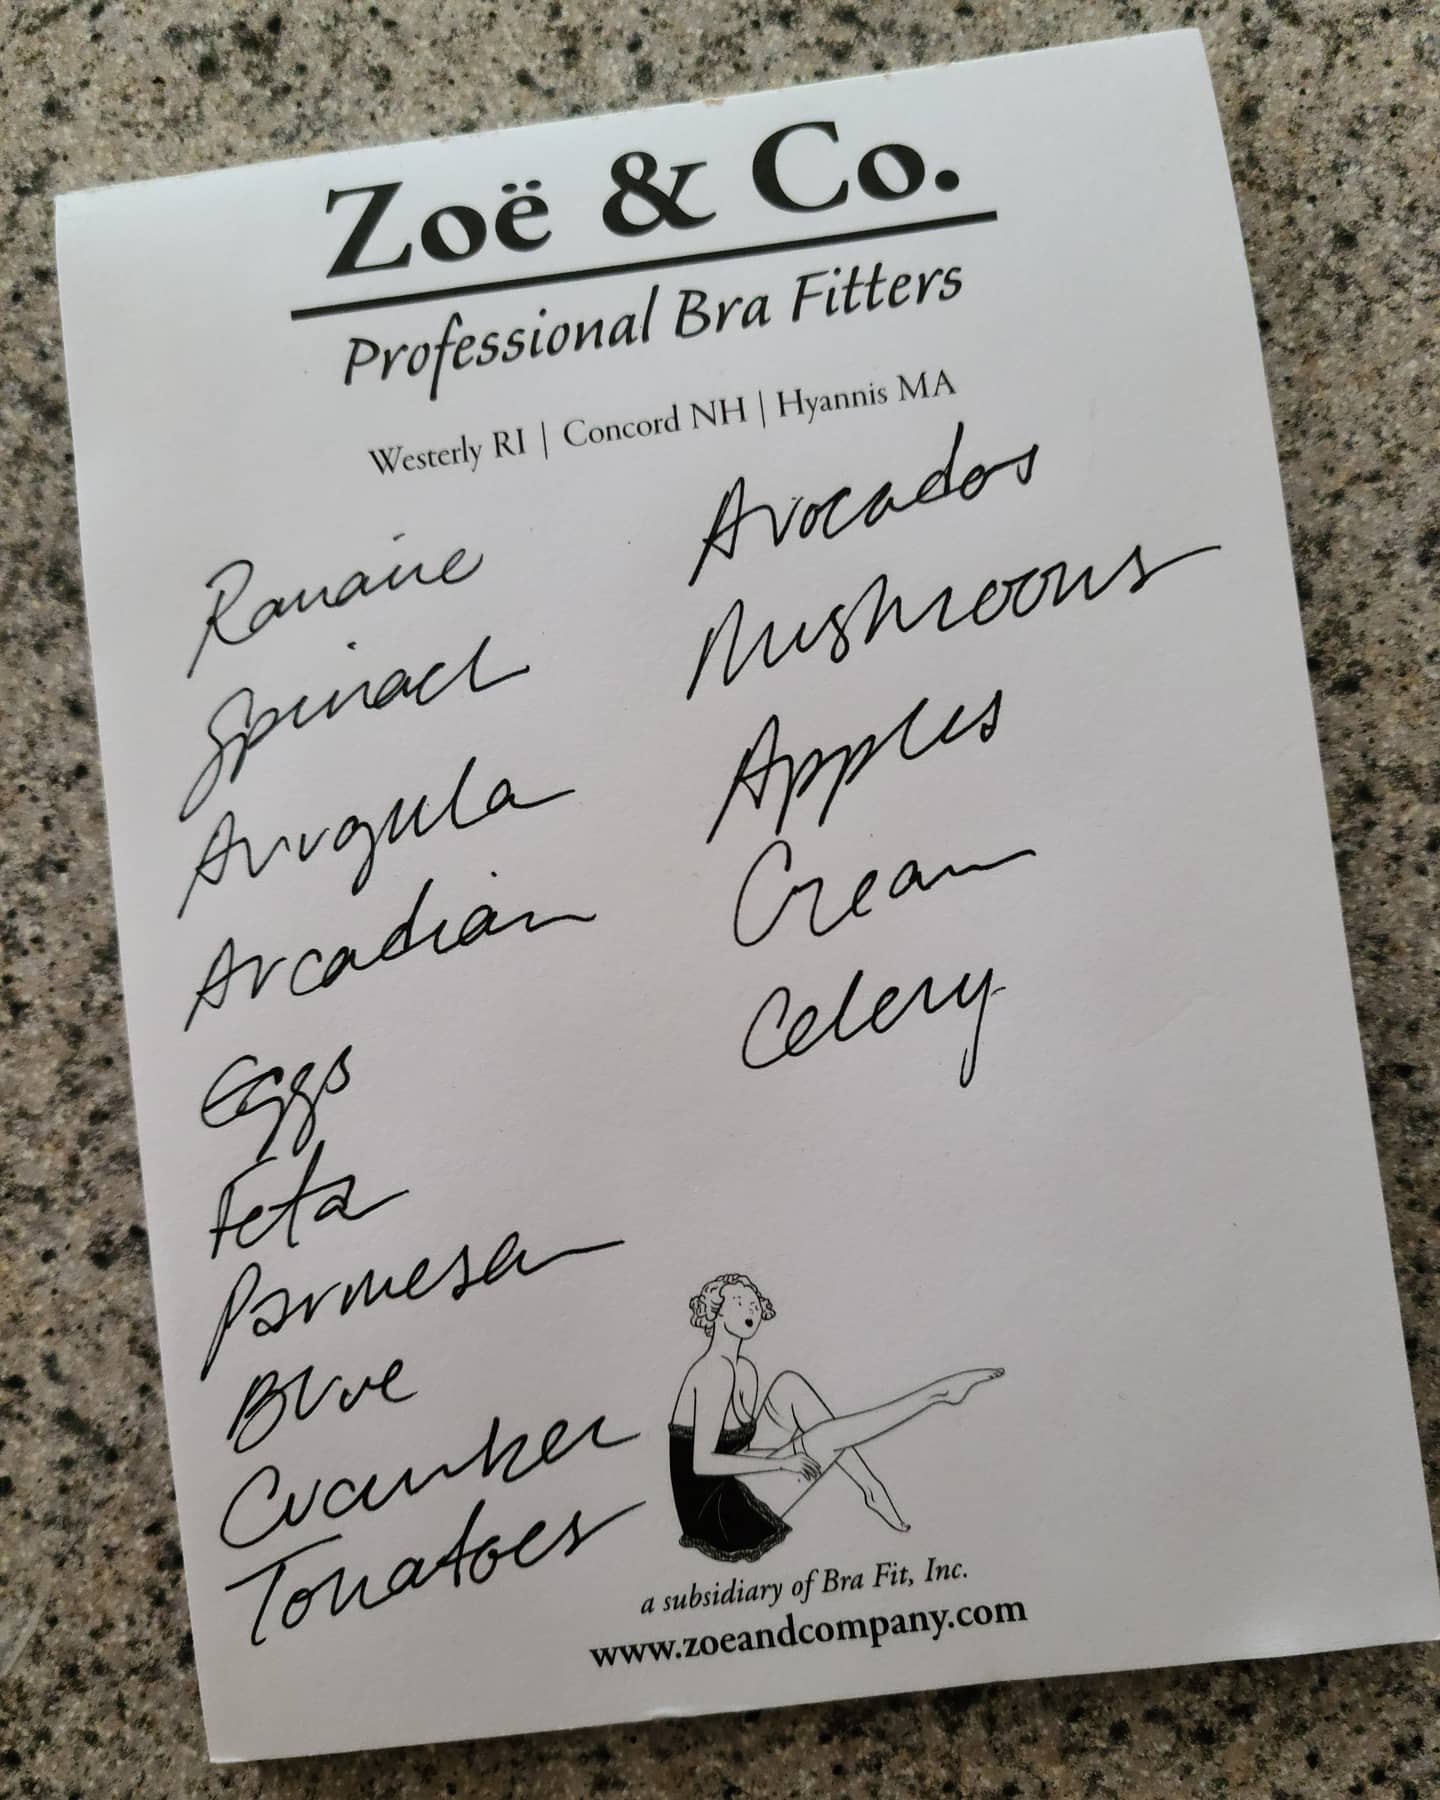 Zoë & Co.
Professional Bra Fitters
Westerly RI | Concord NH | Hyannis MA
Romaine
Spinach
Arugula
Arcadian
Eggs
Feta
Parmesan
Blue
Cucumber
Tomatoes
Avocados
Mushrooms
Apples
Cream
Celery
a subsidiary of Bra Fit, Inc.
www.zoeandcompany.com